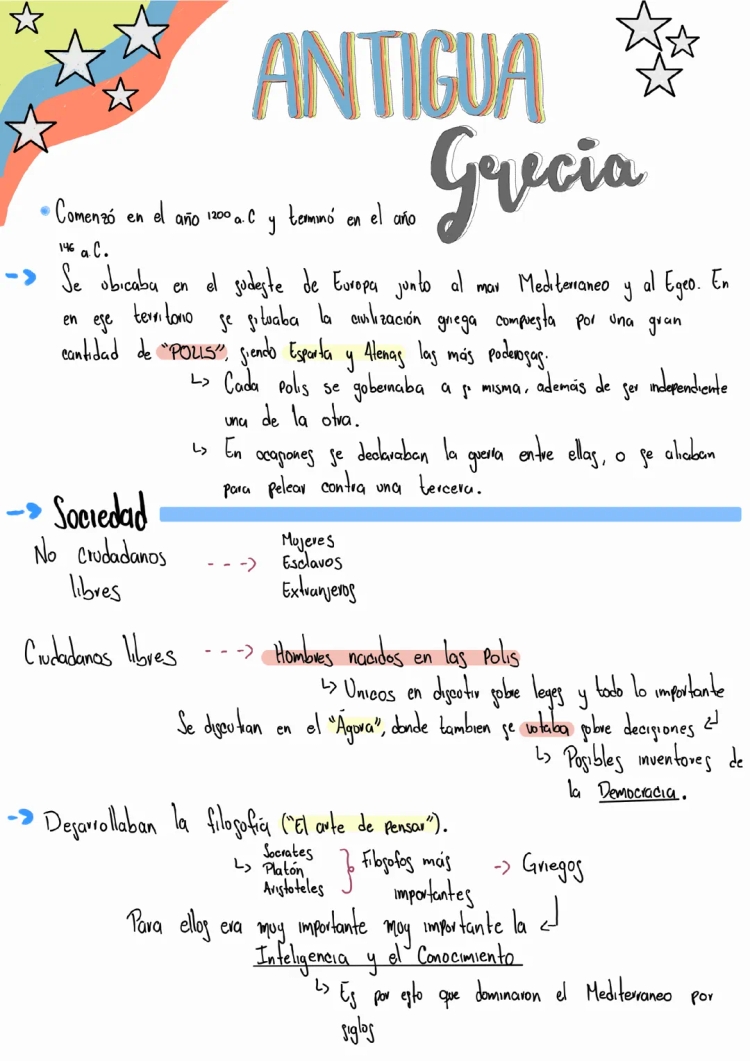 ANTIGUA
Grecia
• Comenzó en el año 1200 a.C y terminó en el año
146 a.C.
-> Se ubicaba en el sudeste de Europa junto al mar Mediterraneo y al Egeo. En
en ese territorio se situaba la civilización griega compuesta por una gran
cantidad de "POLIS", siendo Esparta y Atenas las más poderosas.
↳ Cada Polis se gobernaba a si misma, además de ser independiente
una de la otra.
↳ En ocasiones se declaraban la guerra entre ellas, o se aliaban
para pelear contra una tercera.
-> Sociedad
No Ciudadanos
libres
---> Mujeres
Esclavos
Extranjeros
Ciudadanos libres ---> Hombres nacidos en las Polis
↳ Unicos en discutir sobre leyes y todo lo importante
Se discutian en el "Ágora", donde tambien se votaba sobre decisiones ↲
↳ Posibles inventores de
la Democracia.
-> Desarrollaban la filosofia ("El arte de pensar").
↳ Socrates
Platón
Aristoteles
} Filosofos más
importantes
-> Griegos
Para ellos era muy importante muy importante la ↲
Inteligencia y el Conocimiento
↳ Es por esto que dominaron el Mediterraneo por
siglos